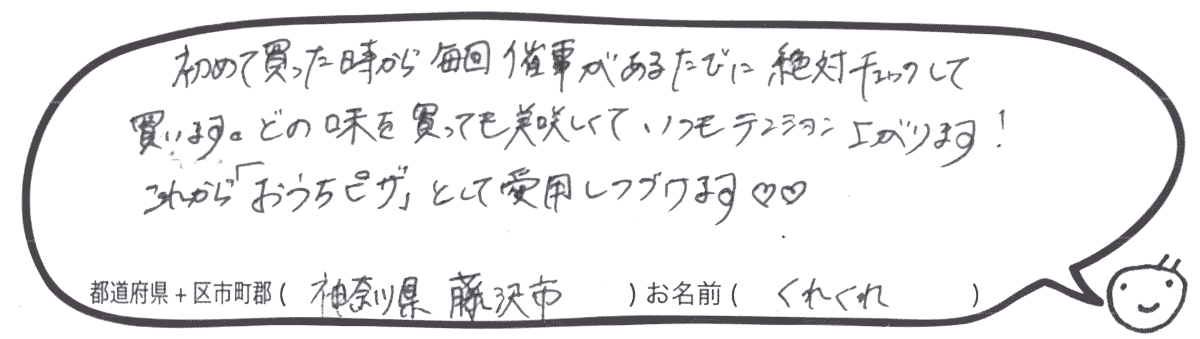 初めて買った時から毎回催事があるたびに絶対チェックして
買います。どの味を買っても美味しくていつもテンション上がります!
これから「おうちピザ」として愛用しつづけます♡♡
都道府県+区市町郡(神奈川県 藤沢市)お名前(くれくれ)